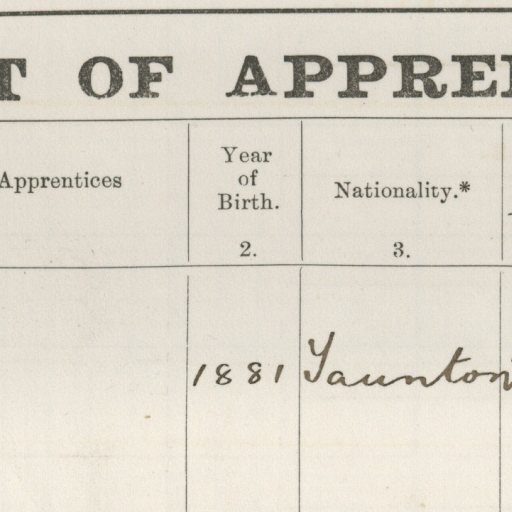 T OF APPRE
Apprentices
Year
of
Birth.
2.
Nationality.*
3.
1881 Taunton